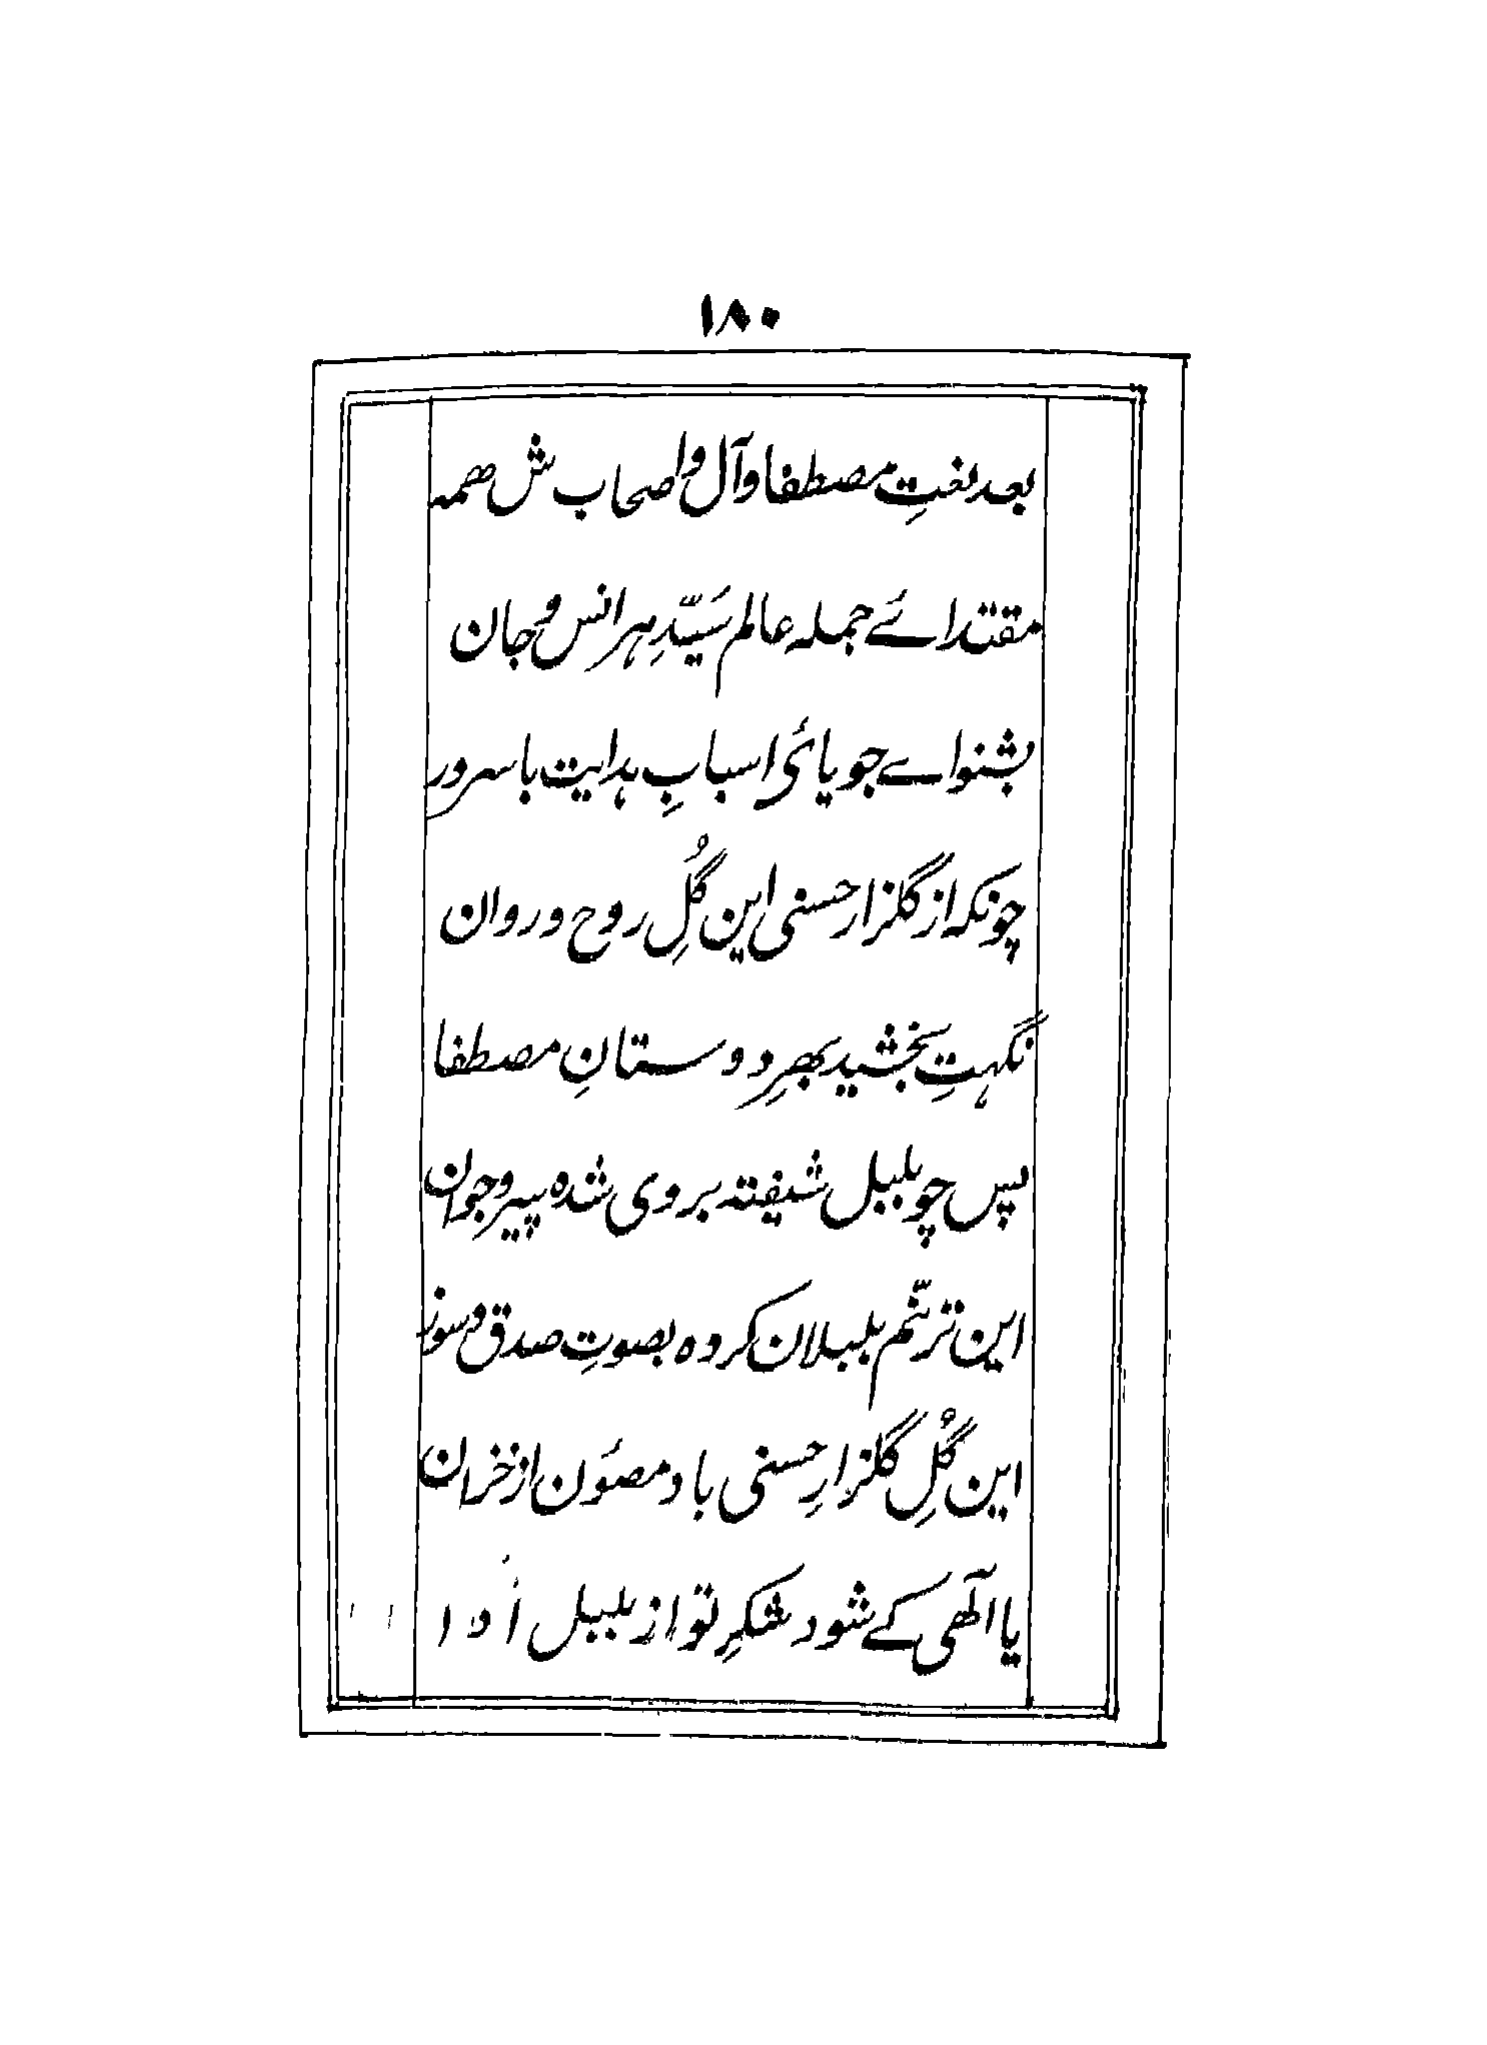 ۱۸۰
بعد نعتِ مصطفا و آل و اصحاب ش همه
مقتدائے جملہ عالم سَیّدِ ہر انس و جان
بشنو اے جویائی اسبابِ ہدایت با سرور
چونکہ از گلزار حسنی این گُلِ روح و روان
نگہتِ بخشید بھرِ دوستانِ مصطفا
پس چو بلبل شیفتہ بروی شدہ پیر و جوان
این ترنّم بلبلان کردہ بصوتِ صدق و سوز
این گُلِ گلزارِ حسنی باد مصئون از خزان
یا الٰھی کے شود شکرِ تو از بلبل اَدا